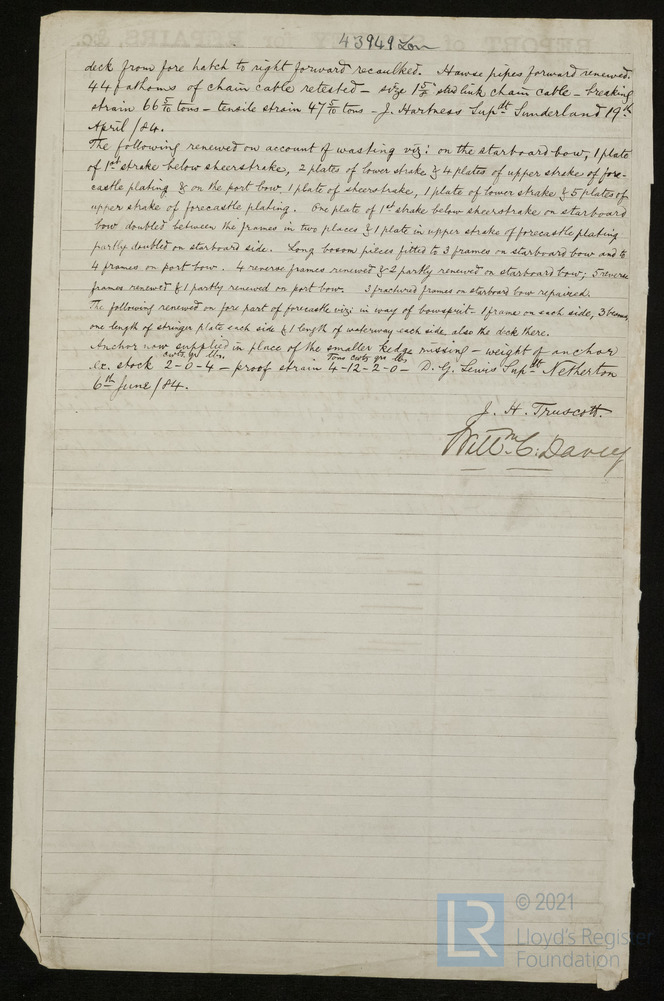 43949 Lon
deck from fore hatch to right forward recaulked. Hawse pipes forward renewed.
44 fathoms of chain cable retested – size 1 5/8 stud link chain cable – breaking
strain 66 5/10 tons – tensile strain 47 5/10 tons – J. Hartness Supdt Sunderland 19th
April /84.
The following renewed on account of wasting viz: on the starboard bow, 1 plate
of 1st strake below sheerstrake, 2 plates of lower strake & 4 plates of upper strake of fore-
castle plating & on the port bow, 1 plate of sheerstrake, 1 plate of lower strake & 5 plates of
upper strake of forecastle plating. One plate of 1st strake below sheerstrake on starboard
bow doubled between the frames in two places & 1 plate in upper strake of forecastle plating
partly doubled on starboard side. Long bosom pieces fitted to 3 frames on starboard bow and to
4 frames on port bow. 4 reverse frames renewed & 2 partly renewed on starboard bow; 5 reverse
frames renewed & 1 partly renewed on port bow. 3 fractured frames on starboard bow repaired.
The following renewed on fore part of forecastle viz: in way of bowsprit – 1 frame on each side, 3 beams,
one length of stringer plate each side & 1 length of waterway each side, also the deck there.
Anchor now supplied in place of the smaller kedge missing – weight of anchor
cwts. qr lbs. Tons cwts qrs lbs
ex. stock 2-0-4 – proof strain 4-12-2-0 – D. G. Lewis Supdt Netherton
6th June /84.
J. H. Truscott.
Willm. C. Davey
LR
© 2021
Lloyd's Register
Foundation